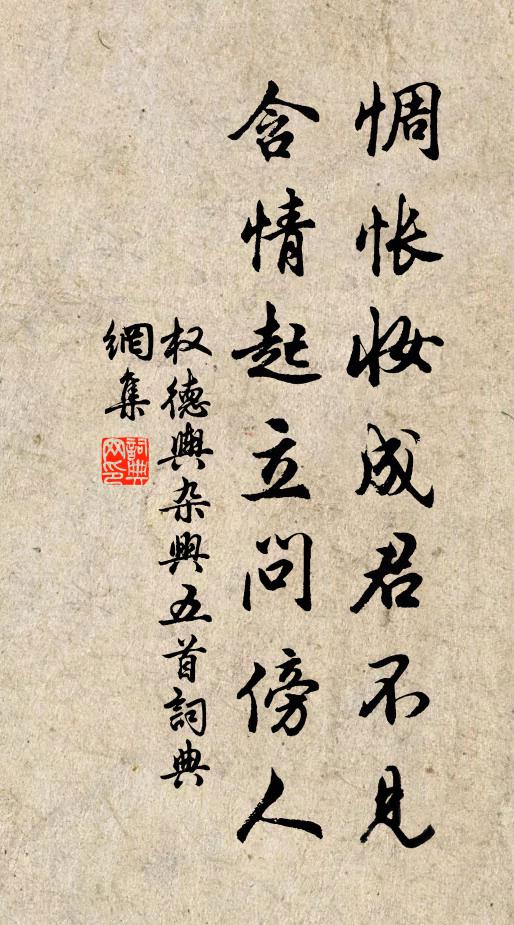 惆怅妆成君不见
含情起立问傍人
权德舆杂兴五首詞典
網集
詞典
网印